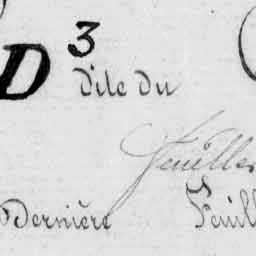 D 3
dite du
Feuillet
Dernière Feuill